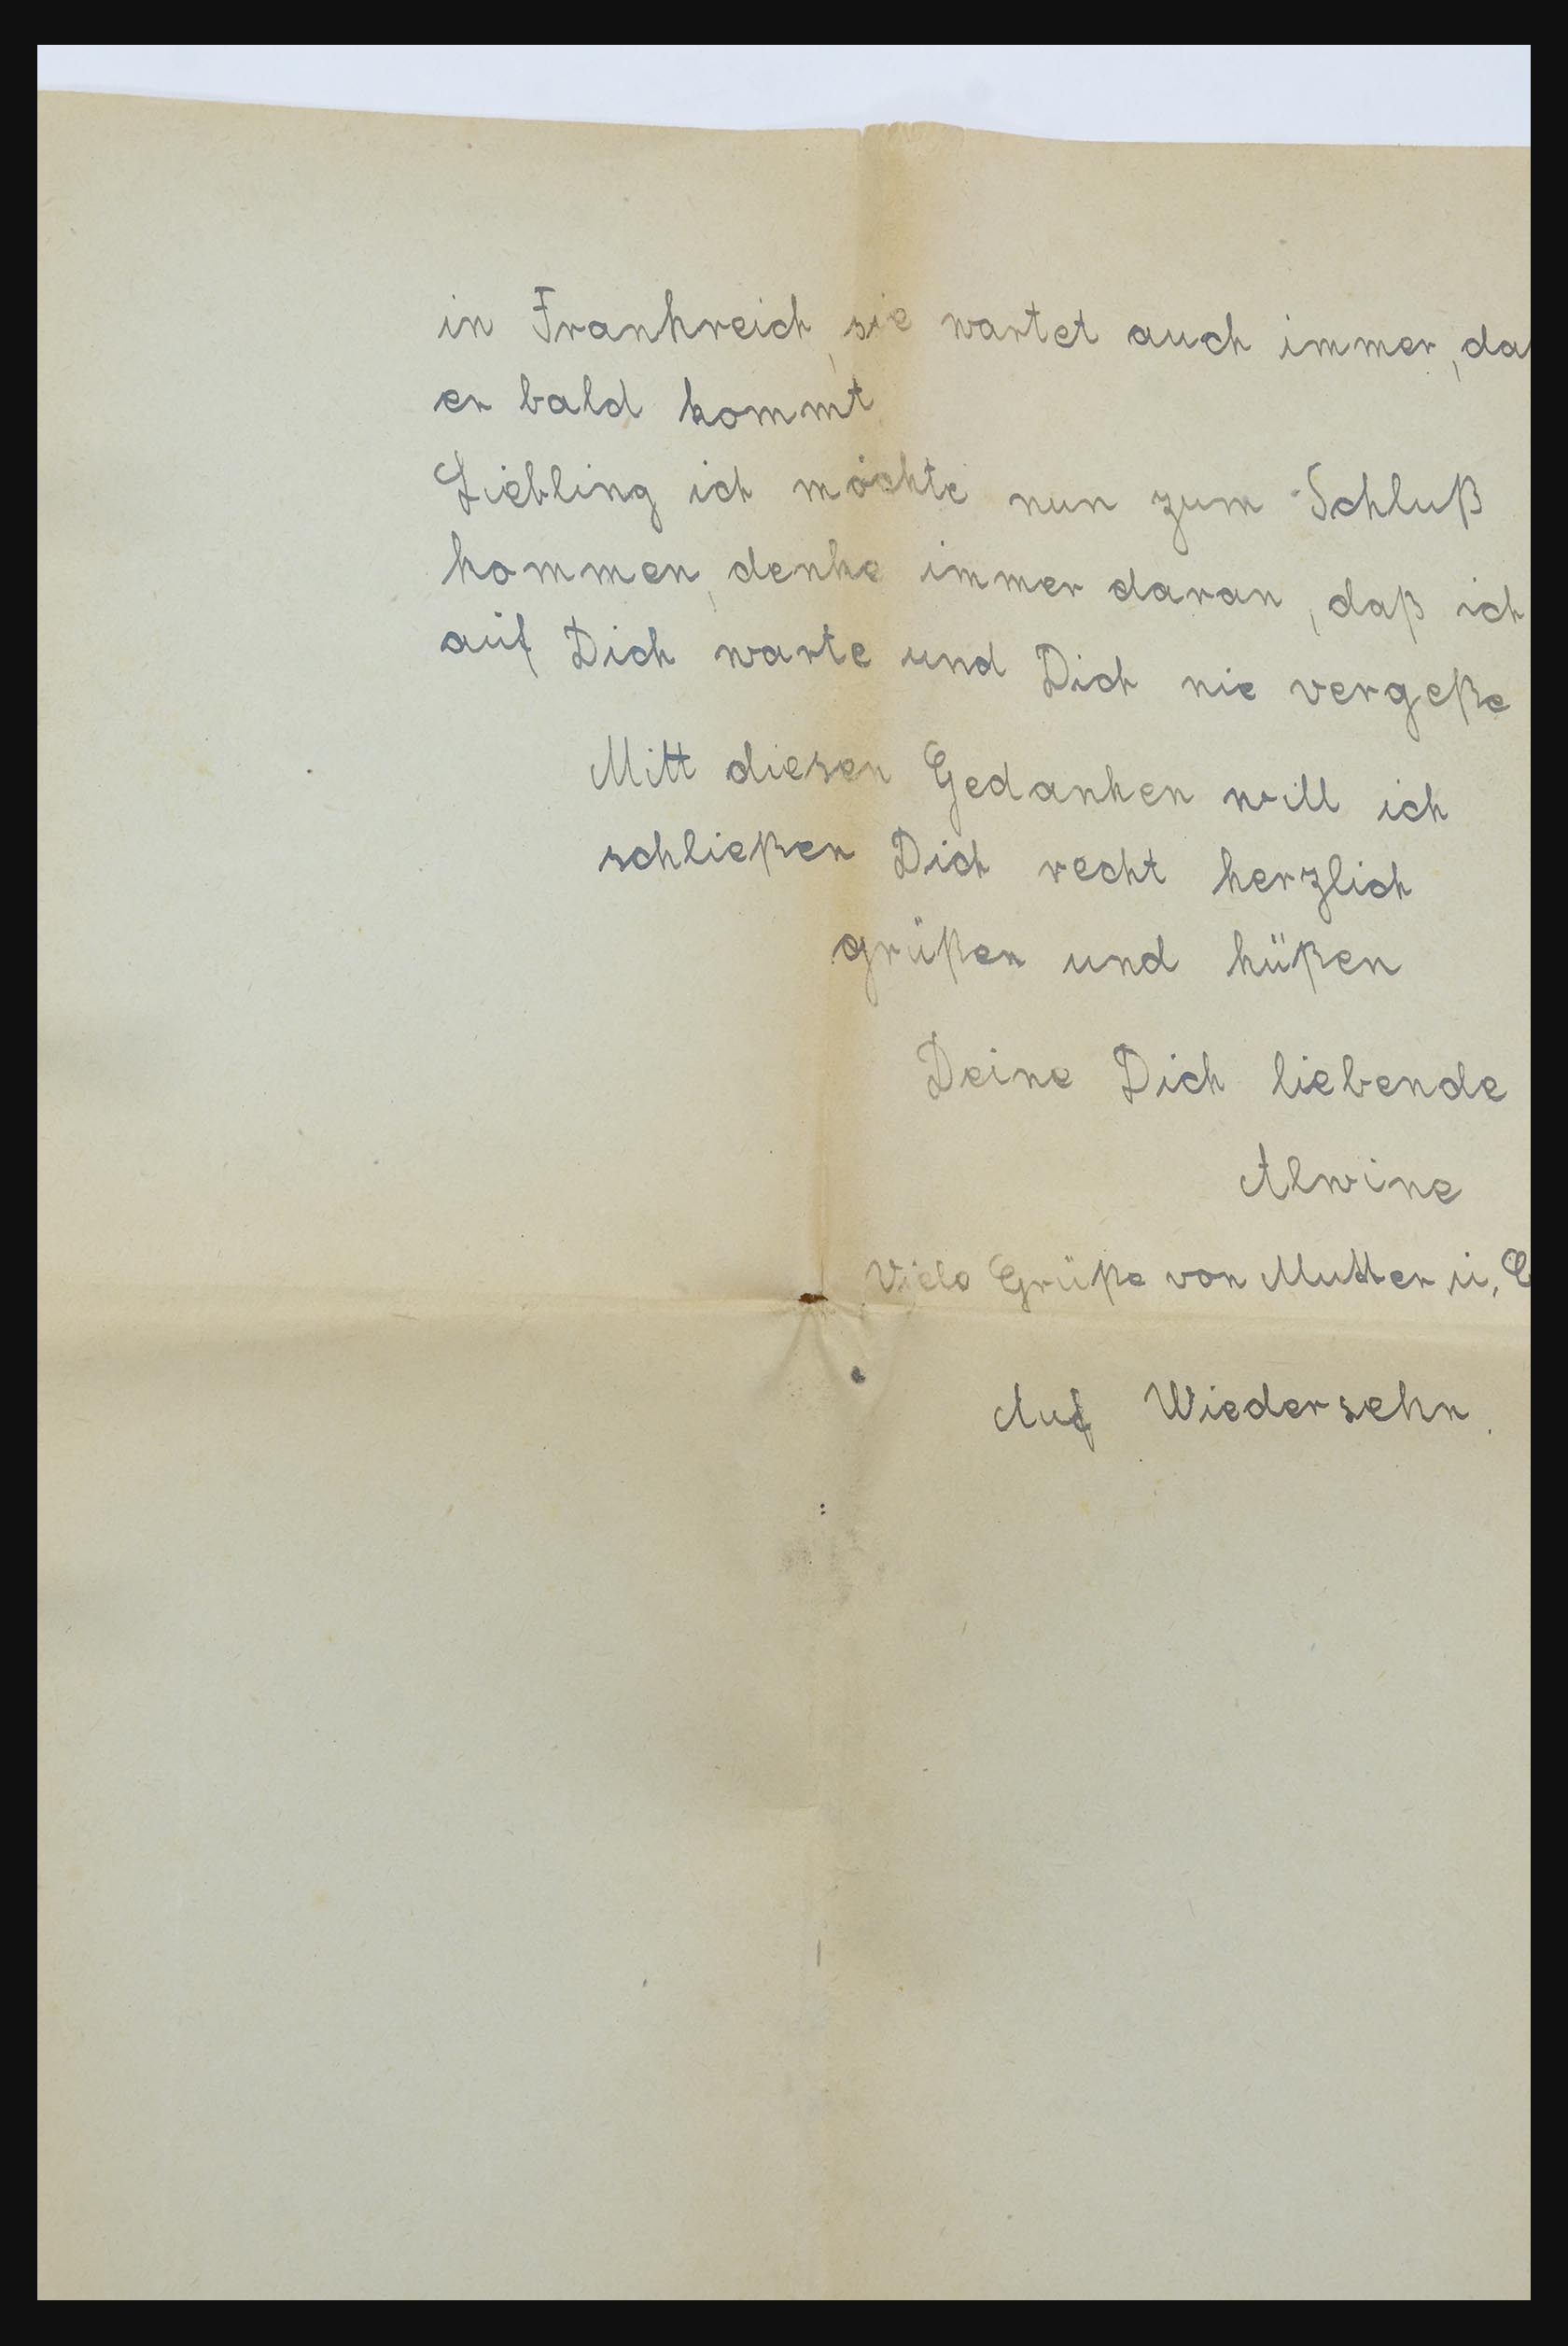 in Frankreich, sie wartet auch immer, da
er bald kommt
Liebling ich möchte nun zum Schluß
kommen, denke immer daran, daß ich
auf Dich warte und Dich nie vergeße
Mitt diesen Gedanken will ich
schließen Dich recht herzlich
grüßen und küßen
Deine Dich liebende
Alwine
Viele Grüße von Mutter u.
Auf Wiedersehn.